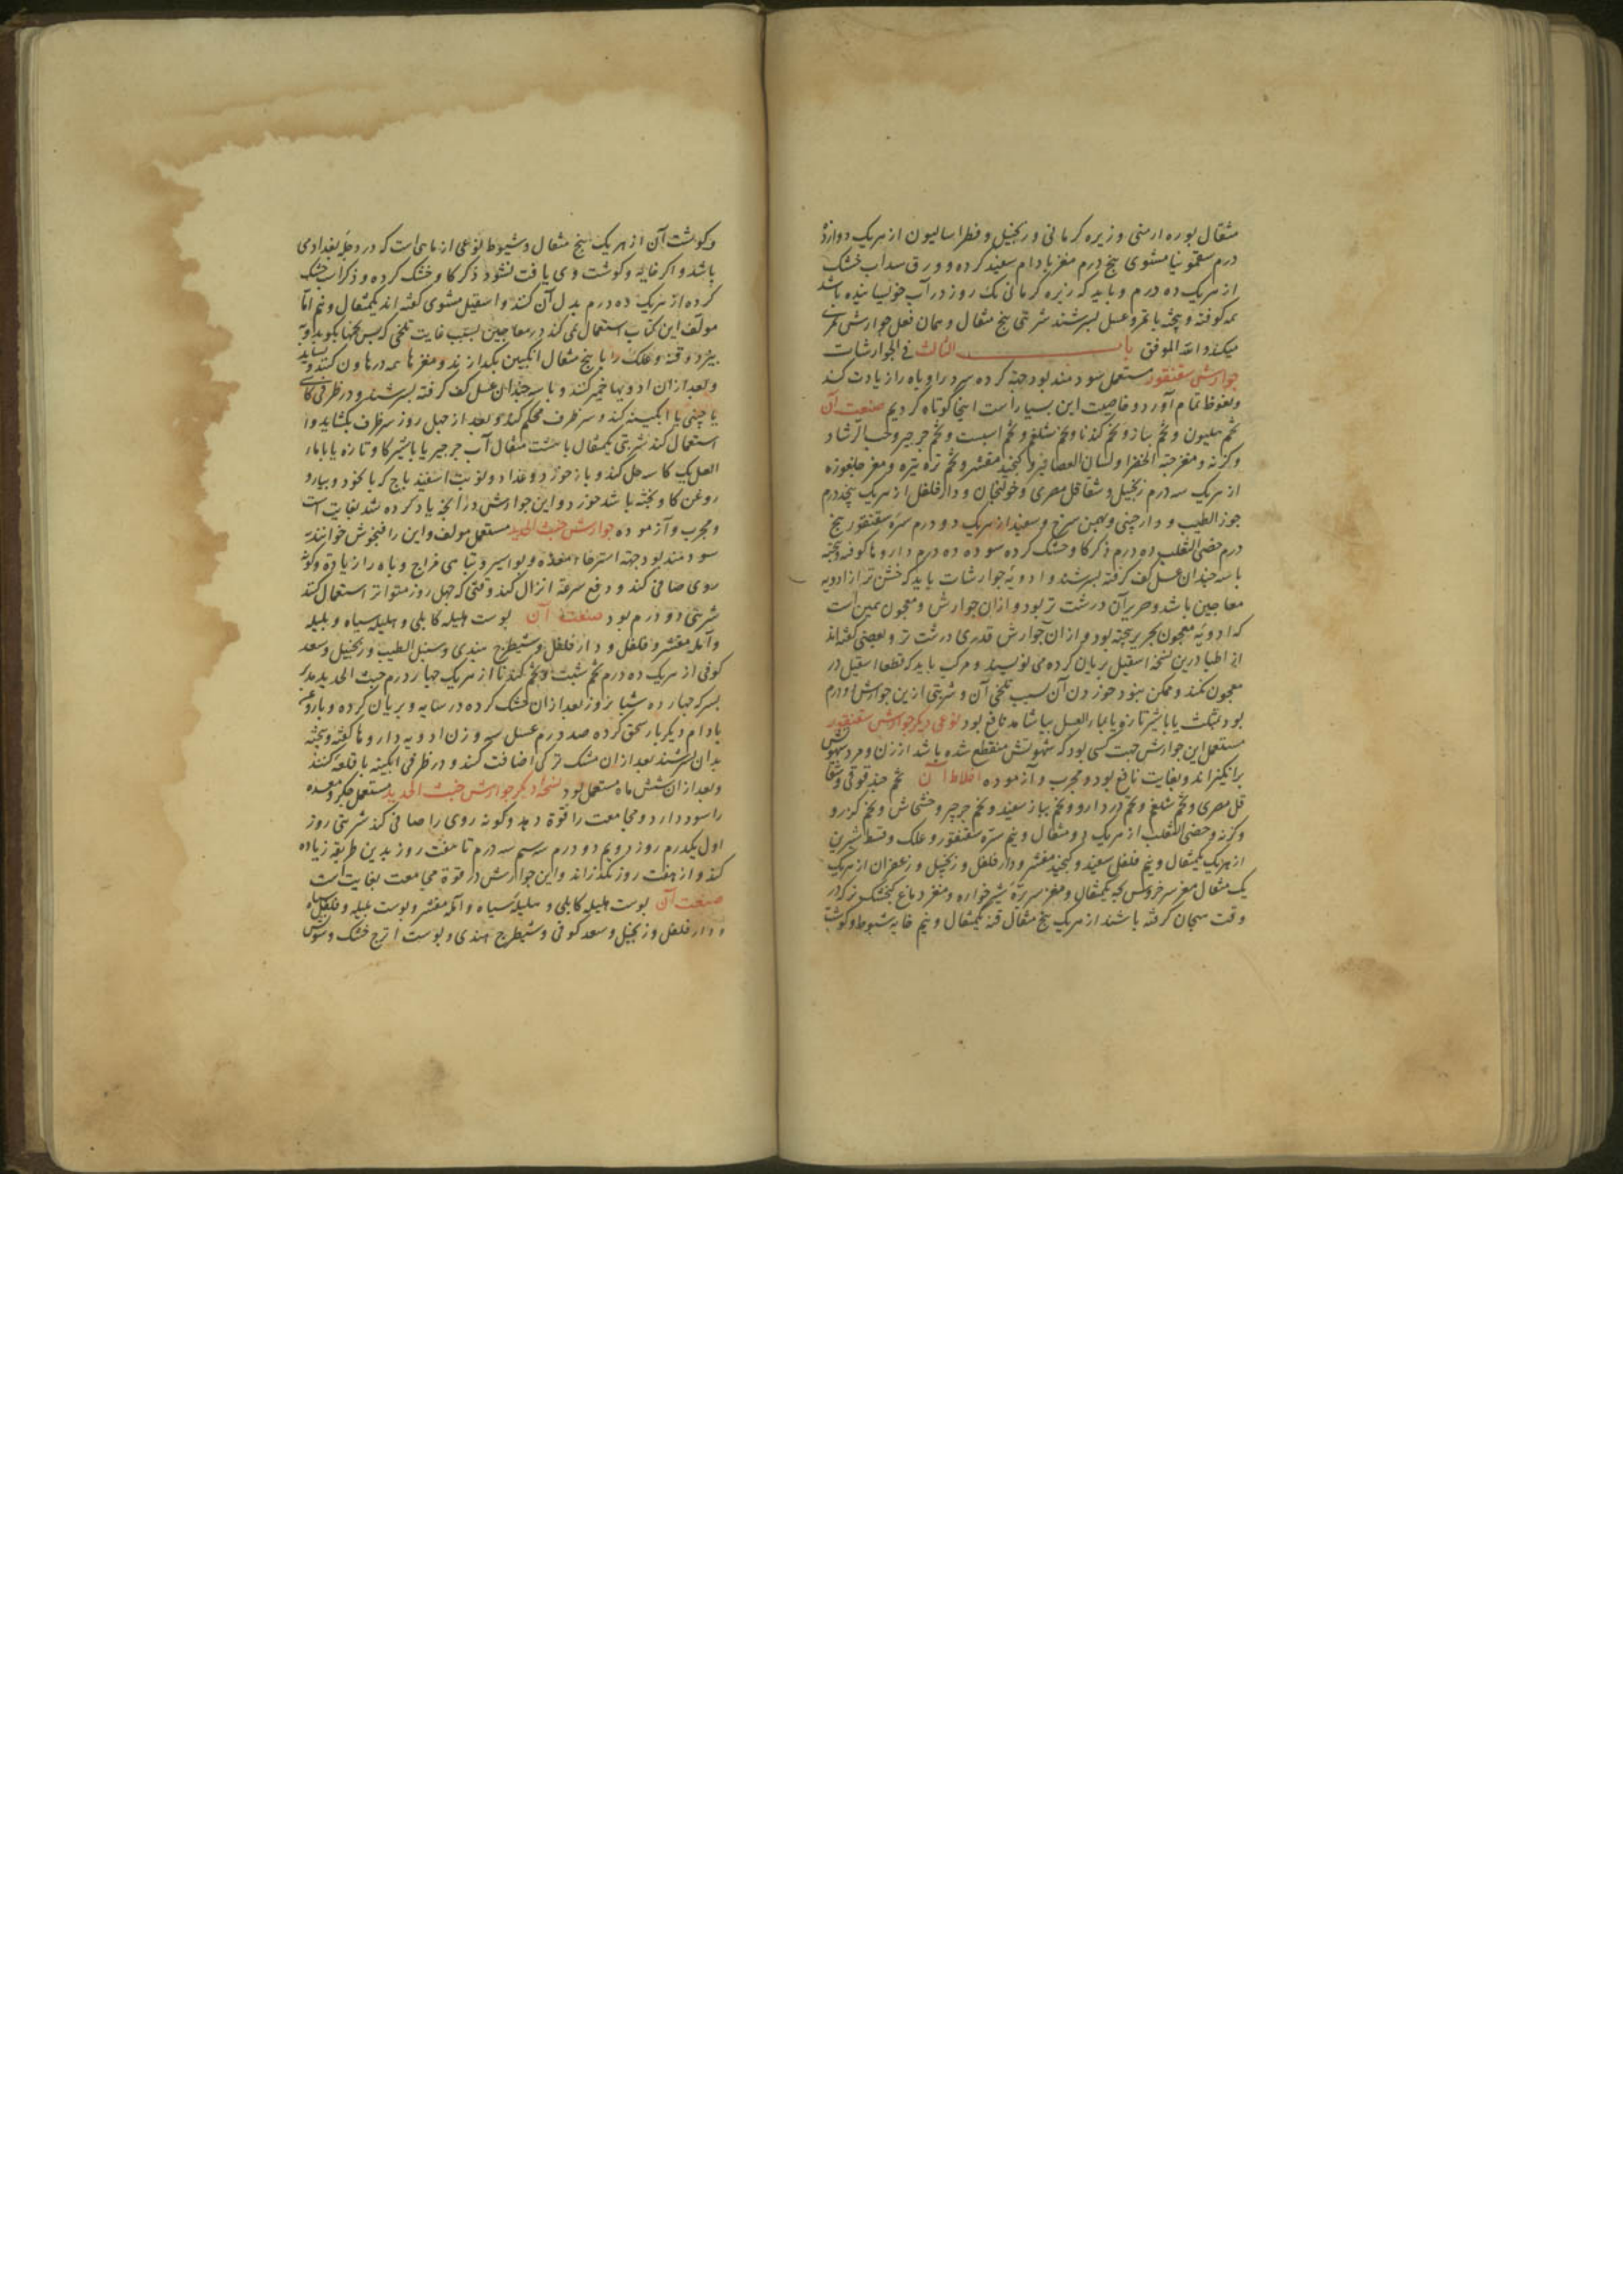 مثقال بوره ارمنی و زیره کرمانی و زنجبیل و فطراسالیون از هریک دوازده
درم سقمونیا مشوی پنج درم مغز بادام سفید کرده و ورق سداب خشک
از هریک ده درم و باید که زیره کرمانی یک روز در آب خوسانیده باشد
همه کوفته و پخته با تمر و عسل بسرشند شربتی پنج مثقال و همان فعل جوارش تمری
میکند والله الموفق باب الثالث فی الجوارشات
جوارش سقنقور مستعمل سودمند بود جهة کرده سرد را و باه را زیادت کند
و نعوظ تمام آورد و خاصیت این بسیار است اینجا کوتاه کردیم صنعت آن
تخم هلیون و تخم پیاز و تخم کندنا و تخم شلغم و تخم اسبست و تخم جرجیر و حب الرشاد
و کزنه و مغز حبة الخضرا و لسان العصافیر و کنجید مقشر و تخم تره تیزه و مغز جلغوزه
از هریک سه درم زنجبیل و شقاقل مصری و خولنجان و دارفلفل از هریک پنجدرم
جوز الطیب و دارچینی و بهمن سرخ و سفید از هریک دو درم سره سقنقور پنج
درم خصی الثعلب ده درم ذکر کاو خشک کرده سوده ده درم داروها کوفته و پخته
با سه چندان عسل کف کرفته بسرشند و ادویه جوارشات باید که خشن تر از ادویه
معاجین باشد و حریر آن درشت تر بود و از ان جوارش و معجون همین است
که ادویه معجون بحریر پخته بود و از آن جوارش قدری درشت تر و بعضی کفته اند
از اطبا درین نسخه اسقیل بریان کرده می نویسند و مرکب باید که قطعا اسقیل در
معجون نکند و ممکن نبود خوردن آن بسبب تلخی آن و شربتی ازین جوارش دو درم
بود بمثلث یا با شیر تازه یا بماء العسل بیاشامد نافع بود نوعی دیکر جوارش سقنقور
مستعمل این جوارش جهت کسی بود که شهوتش منقطع شده باشد از زن و مرد شهوتش
برانکیزاند و بغایت نافع بود و مجرب و آزموده اخلاط آن تخم حندقوقی و شقا
قل مصری و تخم شلغم و تخم دردارو و تخم پیاز سفید و تخم جرجیر و خشخاش و تخم کزر و
و کزنه و خصی الثعلب از هریک دو مثقال و نیم سره سقنقور و علک و قسط شیرین
از هریک یکمثقال و نیم فلفل سفید و کنجید مقشر و دارفلفل و زنجبیل و زعفران از هریک
یک مثقال مغز سر خروس بچه یکمثقال و مغز سر بره شیرخواره و مغز دماغ کنجشک نر که در
وقت هیجان کرفته باشند از هریک پنج مثقال قنه یکمثقال و نیم خایه شبوط و کوشت
و کوشت آن از هریک پنج مثقال و شبوط نوعی از ماهی است که در دجله بغدادی
باشد و اکر خایه و کوشت وی یافت نشود ذکر کاو خشک کرده و ذکر اسب خشک
کرده از هریک ده درم بدل آن کنند و اسقیل مشوی کفته اند یکمثقال و نیم اما
مولف این کتاب استعمال نمی کند در معاجین بسبب غایت تلخی که پس تخمها بکوبد و
بیزد و قنه و علک را با پنج مثقال انکبین بکدازند و مغزها همه در هاون کنند و بساید
و بعد از ان ادویها خمیر کنند و با سه چندان عسل کف کرفته بسرشند و در ظرفی کاشی
یا چینی یا ابکینه کند و سر ظرف محکم کند و بعد از چهل روز سر ظرف بکشاید و
استعمال کند شربتی یکمثقال با هشت مثقال آب جرجیر یا با شیر کاو تازه یا با ماء
العسل یک کاسه حل کند و باز خورد و غداء و نوبت اسفیدباج که با نخود و پیاز و
روغن کاو پخته باشد خورد و این جوارش در انچه یاد کرده شد بغایت است
و مجرب و آزموده جوارش خبث الحدید مستعمل مولف و این را فنجوش خوانند
سودمند بود جهة استرخاء معده و بواسیر و تباهی مزاج و باه را زیاده و کونه
روی صافی کند و دفع سرعة انزال کند وقتی که چهل روز متواتر استعمال کنند
شربتی دو درم بود صنعة آن پوست هلیله کابلی و هلیله سیاه و بلیله
و آمله مقشر و فلفل و دارفلفل و شیطرج هندی و سنبل الطیب و زنجبیل و سعد
کوفی از هریک ده درم تخم شبت و تخم کندنا از هریک چهار درم خبث الحدید مدبر
بسرکه چهارده شبانروز بعد از ان خشک کرده در سایه و بریان کرده و با روغن
بادام دیکر بار سحق کرده صد درم عسل سه وزن ادویه داروها کوفته و پخته
بدان بسرشند بعد از ان مشک ترکی اضافت کنند و در ظرفی ابکینه یا قلعه کنند
و بعد از ان شش ماه مستعمل بود نسخه دیکر جوارش خبث الحدید مستعمل جکر و معده
را سود دارد و مجامعت را قوة دهد و کونه روی را صافی کند شربتی روز
اول یکدرم روز دویم دو درم سیم سه درم تا هفت روز بدین طریقه زیاده
کند و از هفت روز نکذراند و این جوارش در قوة مجامعت بغایت است
صنعت آن پوست هلیله کابلی و هلیله سیاه و آمله مقشر و پوست بلیله و فلفل سیاه
و دارفلفل و زنجبیل و سعد کوفی و شیطرج هندی و پوست اترج خشک و